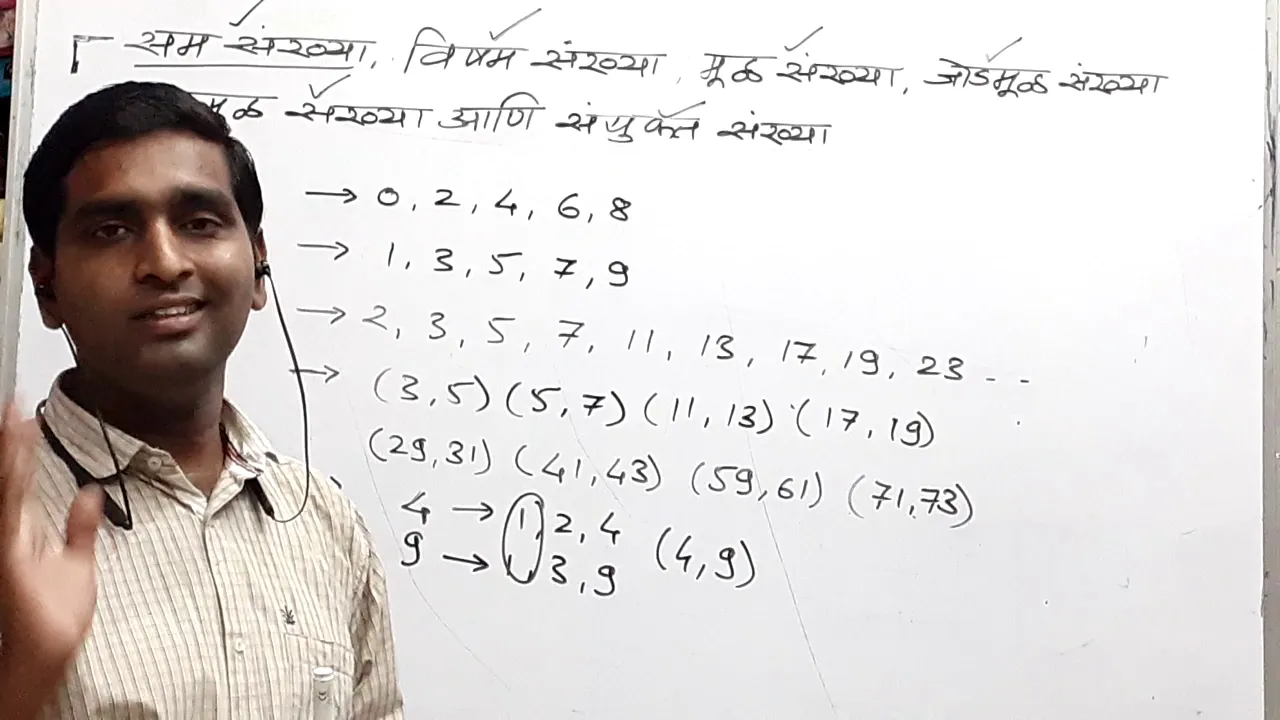 सम संख्या, विषम संख्या, मूळ संख्या, जोडमूळ संख्या
मूळ संख्या आणि संयुक्त संख्या
→ 0, 2, 4, 6, 8
→ 1, 3, 5, 7, 9
→ 2, 3, 5, 7, 11, 13, 17, 19, 23 - -
→ (3, 5) (5, 7) (11, 13) (17, 19)
(29, 31) (41, 43) (59, 61) (71, 73)
4 → 1, 2, 4
9 → 1, 3, 9 (4, 9)